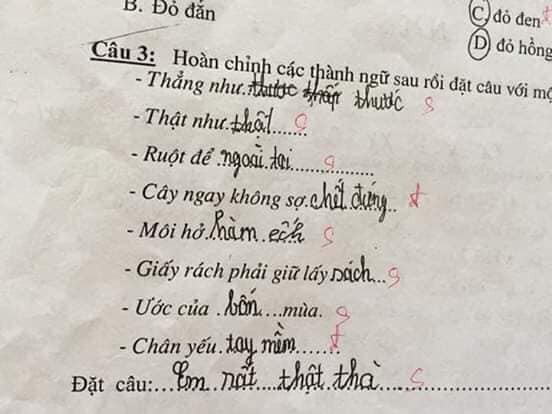 B. Đỏ đắn
C đỏ đen
D đỏ hồng
Câu 3: Hoàn chỉnh các thành ngữ sau rồi đặt câu với mộ
- Thẳng như thước thước s
- Thật như thật s
- Ruột để ngoài tai s
- Cây ngay không sợ chết đứng đ
- Môi hở hàm ếch s
- Giấy rách phải giữ lấy sách s
- Ước của bốn mùa. s
- Chân yếu tay mềm đ
Đặt câu: Em rất thật thà s